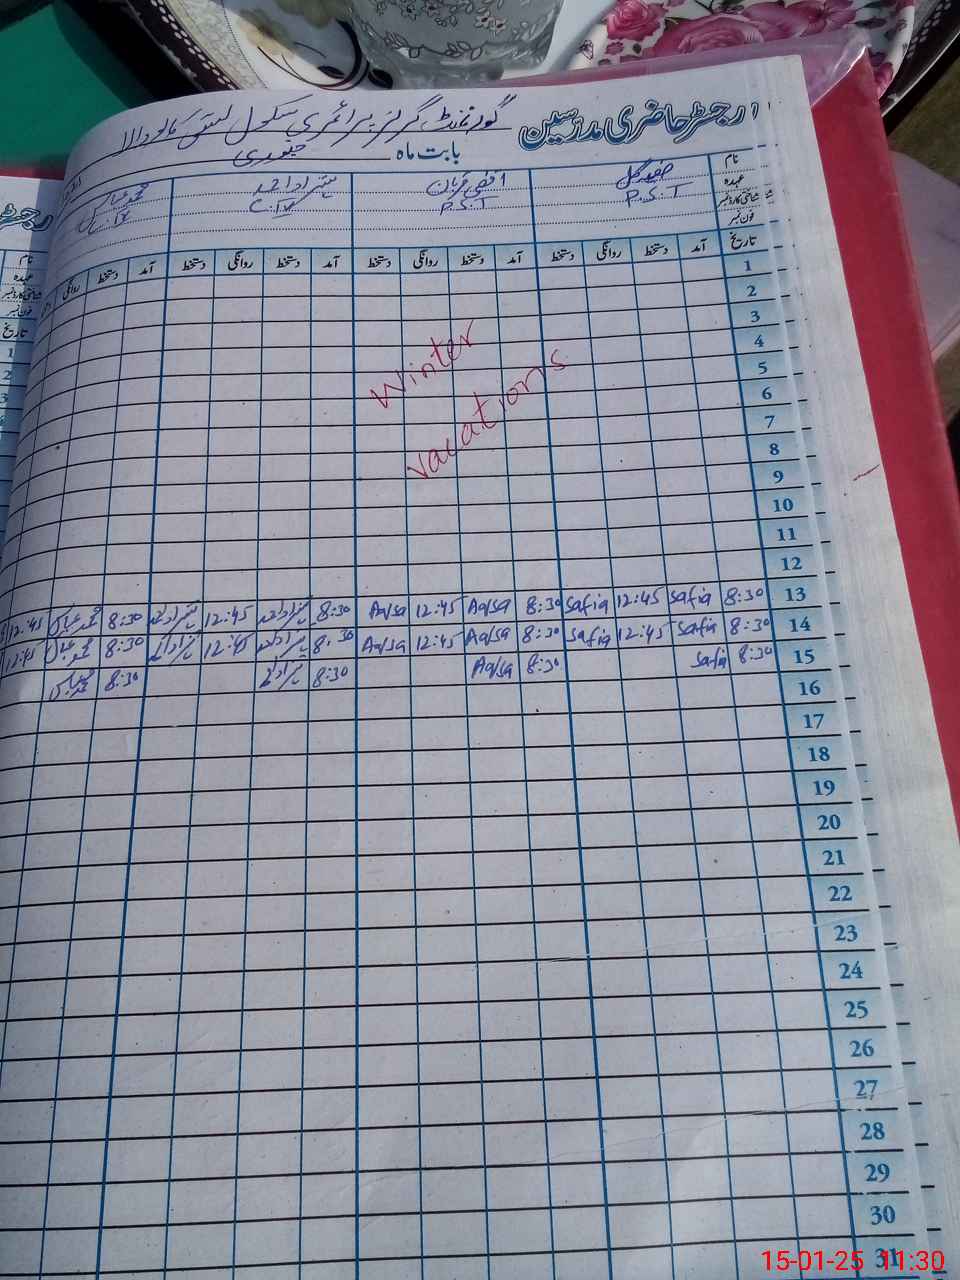 رجسٹر حاضری مدرسین گورنمنٹ گرلز پرائمری سکول
بابت ماہ جنوری
نام
عہدہ P.S.T P.S.T
شناختی کارڈ نمبر
فون نمبر
تاریخ آمد دستخط روانگی دستخط آمد دستخط روانگی دستخط آمد دستخط روانگی دستخط آمد دستخط روانگی
1
2
3
4
5
6
7
8
9
10
11
12
Winter
vacations
13 8:30 Safia 12:45 Safia 8:30 Aqsa 12:45 Aqsa 8:30 12:45 8:30 محمد عباس 12:45
14 8:30 Safia 12:45 Safia 8:30 Aqsa 12:45 Aqsa 8:30 12:45 8:30 محمد عباس 12:45
15 8:30 Safia 8:30 Aqsa 8:30 8:30 محمد عباس
16
17
18
19
20
21
22
23
24
25
26
27
28
29
30
31
نام
عہدہ
شناختی کارڈ نمبر
فون نمبر
تاریخ
1
2
3
15-01-25 11:30